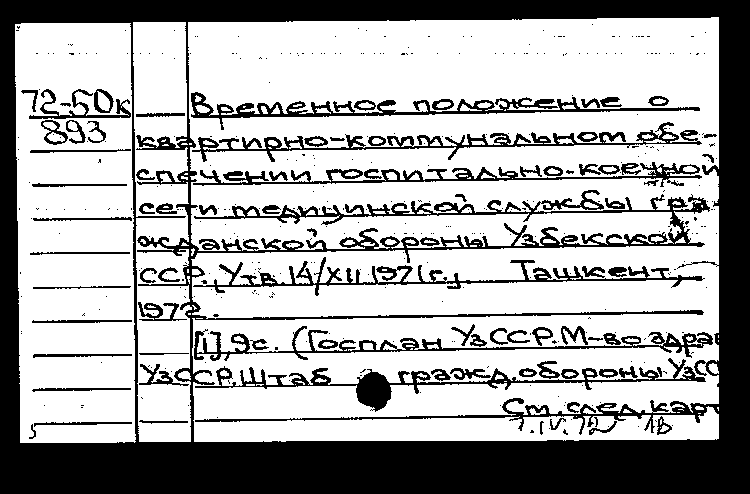 72-50к Временное положение о
893 квартирно-коммунальном обе-
спечении госпитально-коечной
сети медицинской службы гра-
жданской обороны Узбекской
ССР. [Утв. 14/XII 1971 г.]. Ташкент,
1972.
[1], 9с. (Госплан УзССР. М-во здрав
УзССР. Штаб гражд. обороны УзСС
См. след. карт
5 7.IV.72 1в